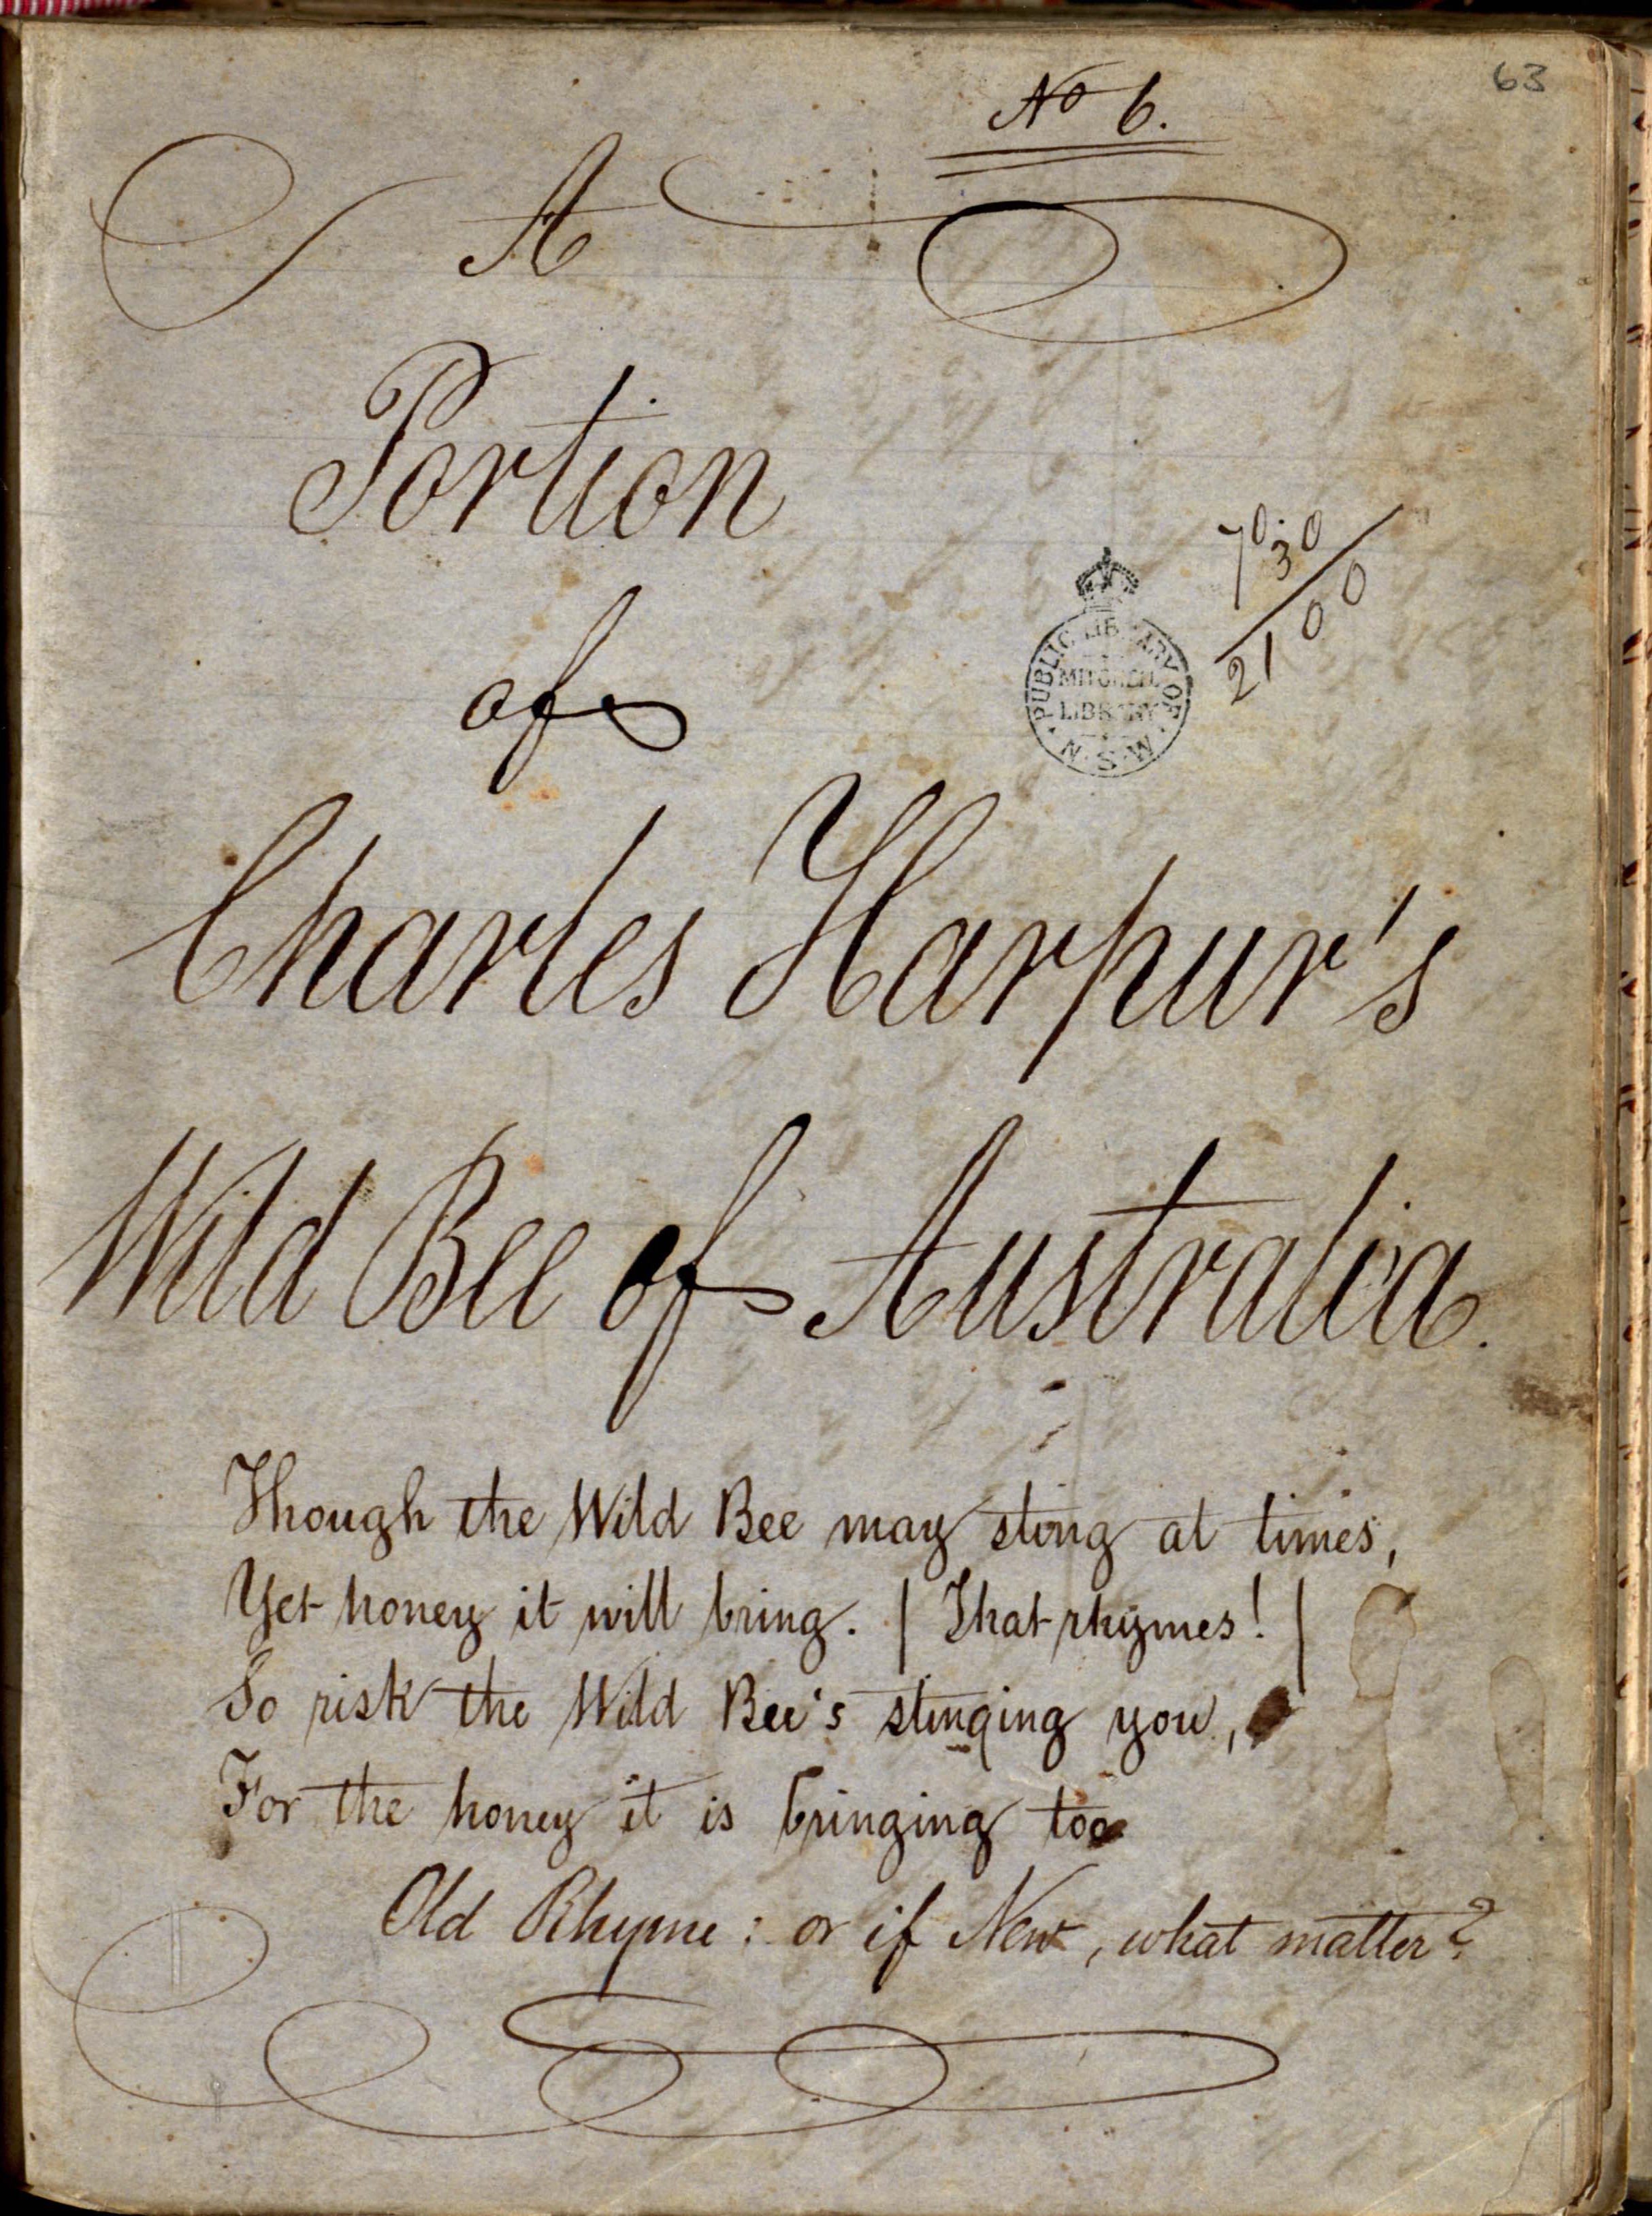 63
No 6.
A
Portion
of
70
30
2100
PUBLIC LIBRARY OF N.S.W.
MITCHELL
LIBRARY
Charles Harpur's
Wild Bee of Australia.
Though the Wild Bee may sting at times,
Yet honey it will bring. | That rhymes! |
So risk the Wild Bee's stinging you,
For the honey it is bringing too
Old Rhyme: or if New, what matter?